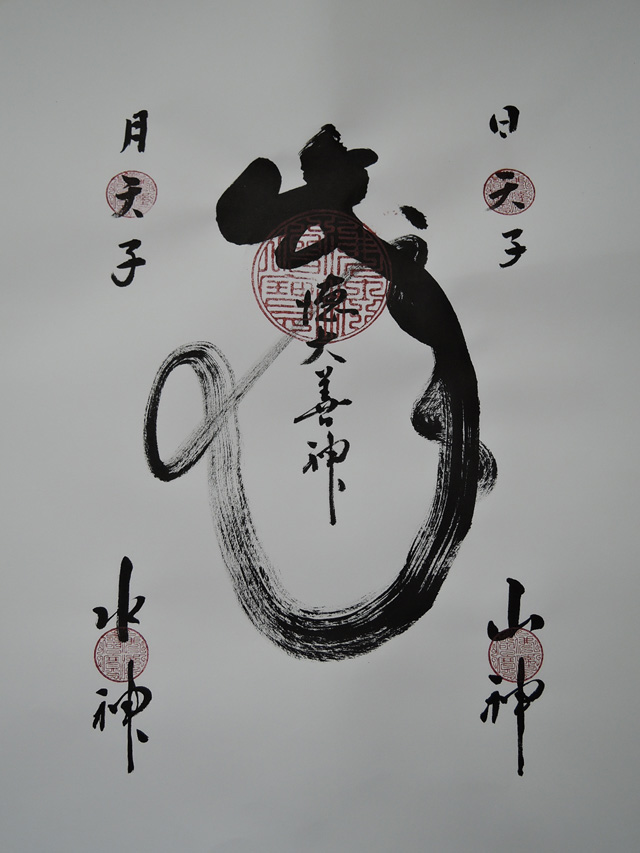 日天子
山神
歳徳大善神
月天子
水神